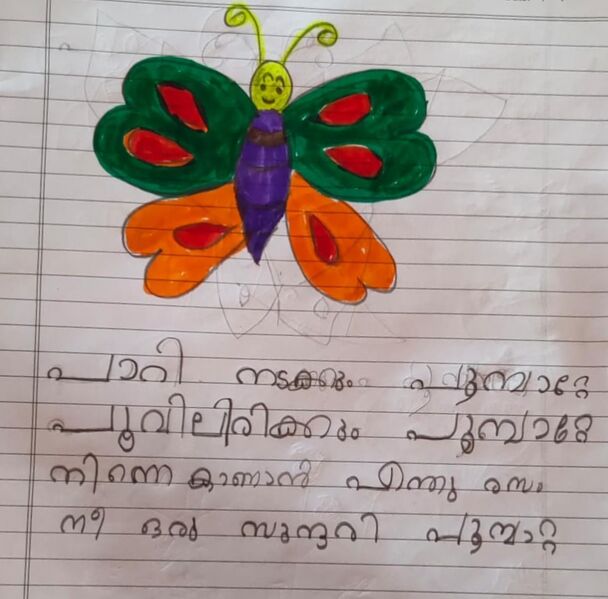 പാറി നടക്കും പൂമ്പാറ്റേ
പൂവിലിരിക്കും പൂമ്പാറ്റേ
നിന്നെ കാണാൻ എന്തു രസം
നീ ഒരു സുന്ദരി പൂമ്പാറ്റ